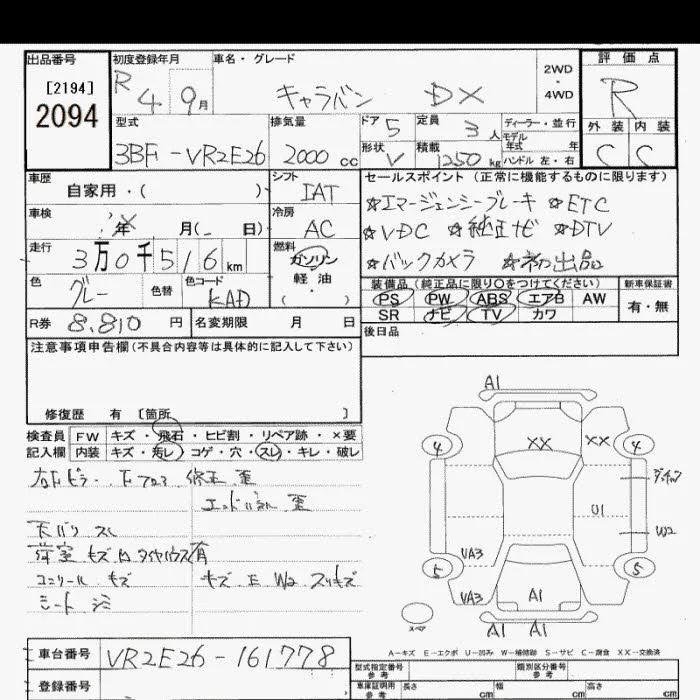 出品番号 初度登録年月 車名・グレード 評価点
[2194]
2094
R 4 9月
キャラバン DX
2WD
・
4WD
R
外装 内装
C C
型式 排気量 ドア 5 定員 3人 ディーラー・並行
モデル年式 年
3BF-VR2E26 2000cc 形状 V 積載 1250kg ハンドル 左・右
車歴 シフト セールスポイント (正常に機能するものに限ります)
自家用・( ) IAT
☆エマージェンシーブレーキ ☆ETC
車検 冷房
年 月( 日) AC
☆VDC ☆純正ナビ ☆DTV
走行 燃料
3万0千516km ガソリン
・
軽油
・
( )
☆バックカメラ ☆初出品
色 色替 色コード
グレー KAD
装備品 (純正品に限り○をつけてください) 新車保証書
PS PW ABS エアB AW 有・無
SR ナビ TV カワ
R券 8,810円 名変期限 月 日 後日品
注意事項申告欄 (不具合内容等は具体的に記入して下さい)
修復歴 有 [箇所 ]
検査員 FW キズ・飛石・ヒビ割・リペア跡・×要
記入欄 内装 キズ・汚レ・コゲ・穴・スレ・キレ・破レ
右Fピラー Fフロア 修正 歪
エンドパネル 歪
天バリ スレ
荷室 キズ 凹 タイヤハウス有
コンソール キズ キズ E W2 スリキズ
シート シミ
A1
XX XX
4 4
U1
W2
UA3
5 5
UA3 A1
スペア
A1 A1
A-キズ E-エクボ U-凹み W-補修跡 S-サビ C-腐食 XX-交換済
車台番号 VR2E26-161778
型式指定番号 参考 類別区分番号 参考
登録番号
車庫証明用 参考 長さ cm 幅 cm 高さ cm